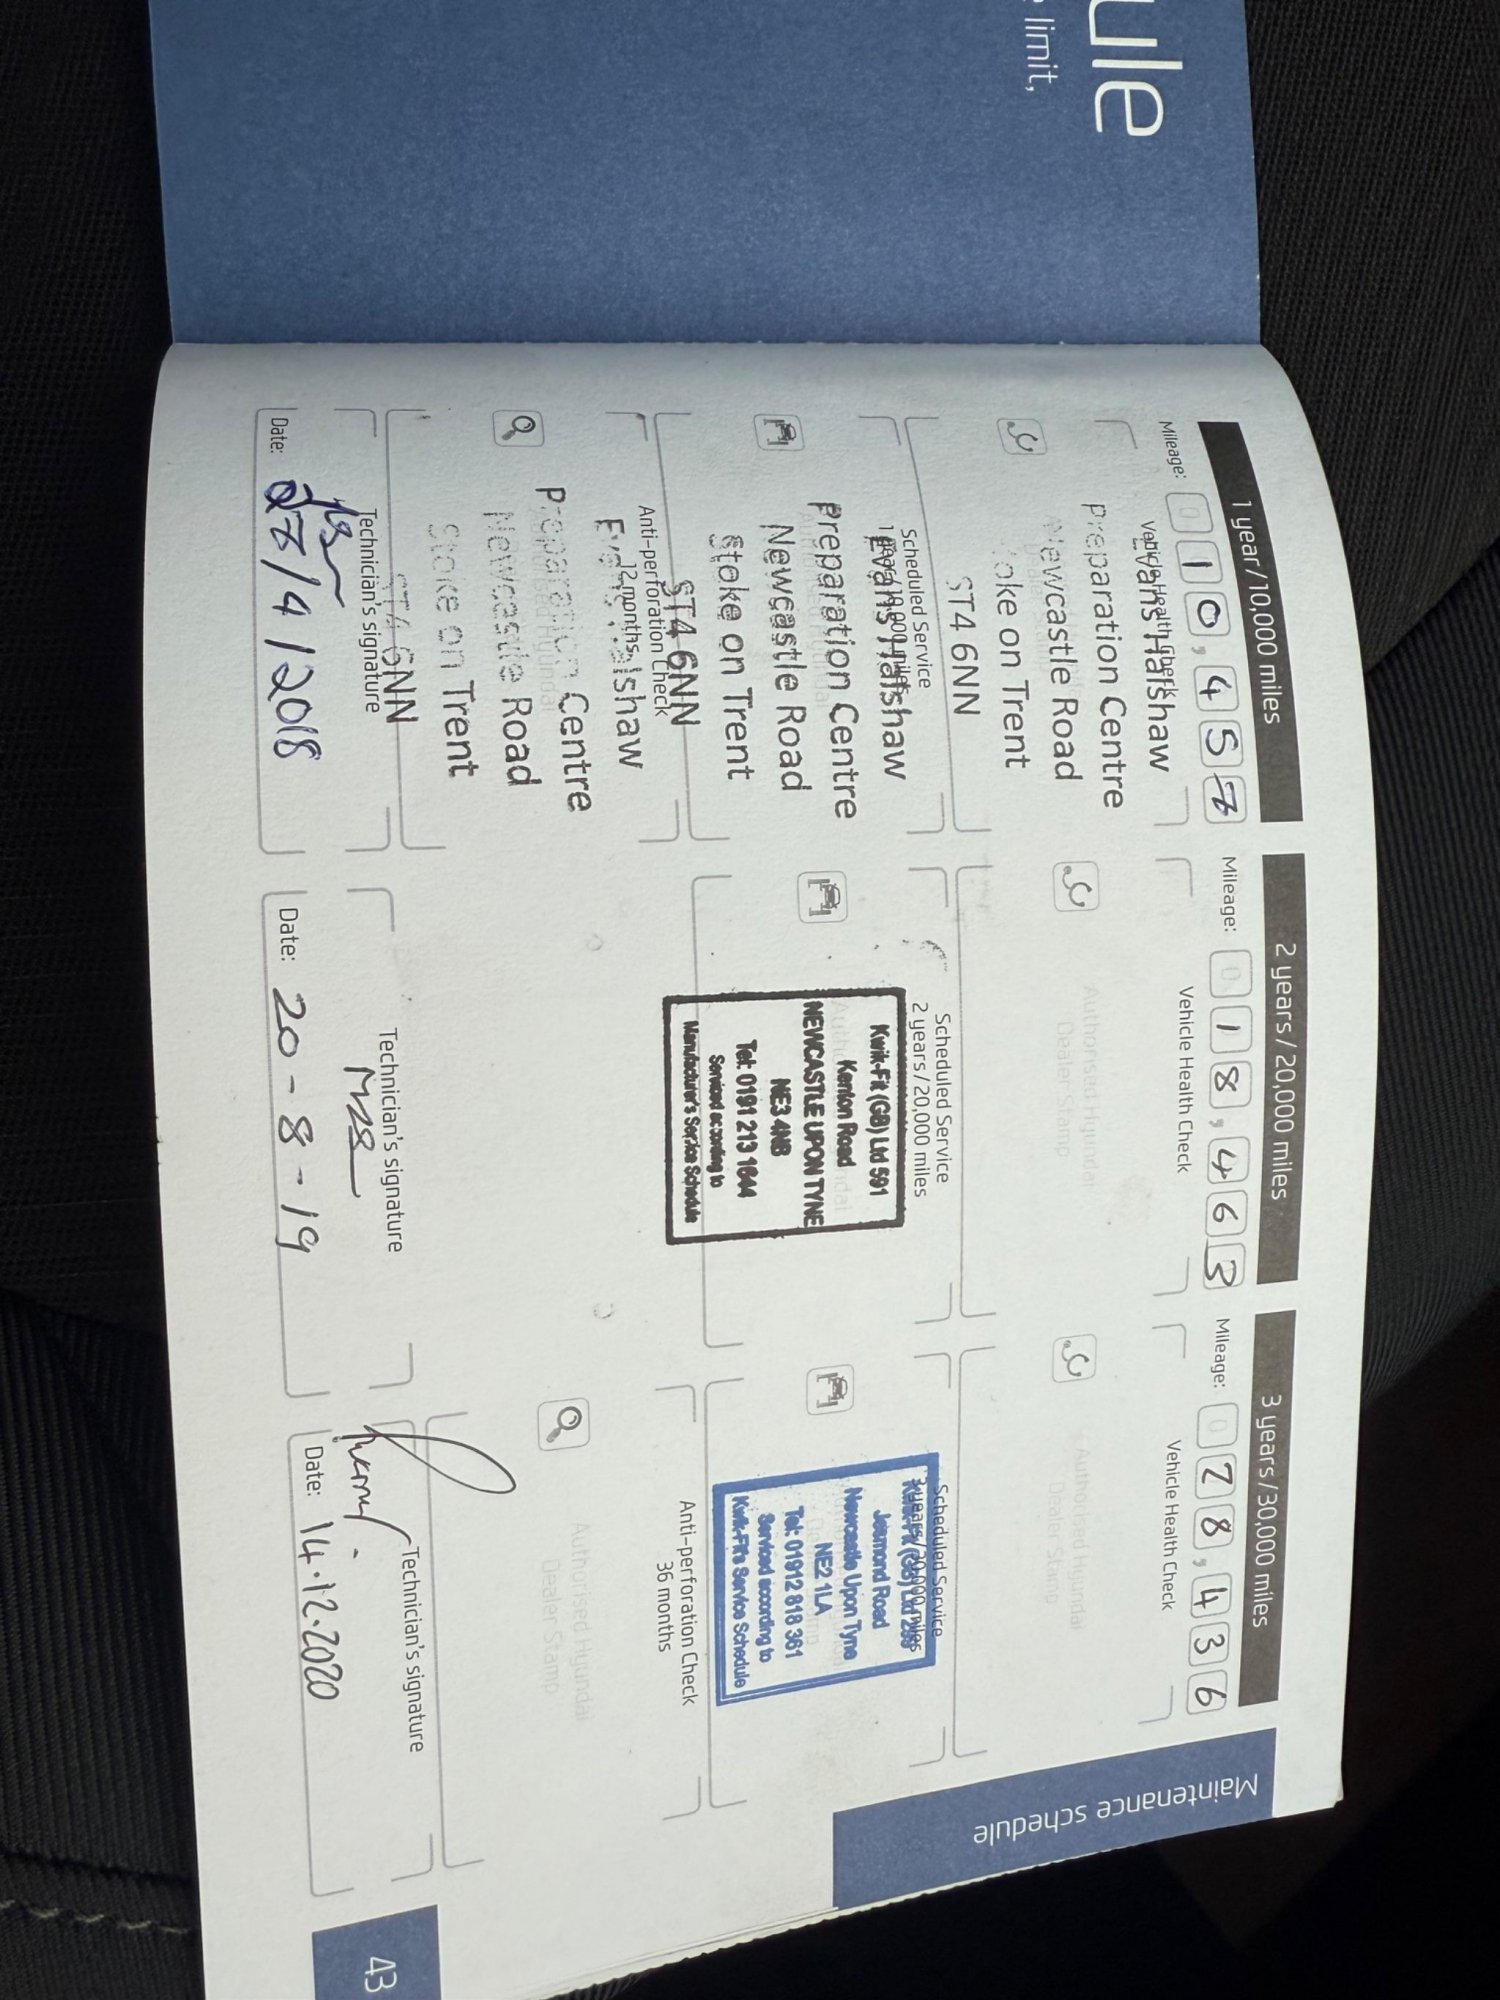 ule
limit,
1 year/10,000 miles
Mileage: 0 1 0 , 4 5 7
Vehicle Health Check
Evans Halshaw
Preparation Centre
Newcastle Road
Stoke on Trent
ST4 6NN
Scheduled Service
1 years/10,000 miles
Evans Halshaw
Preparation Centre
Newcastle Road
Stoke on Trent
ST4 6NN
Anti-perforation Check
12 months
Evans Halshaw
Preparation Centre
Newcastle Road
Stoke on Trent
ST4 6NN
Technician's signature
Date: 27/4/2018
2 years/20,000 miles
Mileage: 0 1 8 , 4 6 3
Vehicle Health Check
Authorised Hyundai
Dealer Stamp
Scheduled Service
2 years/20,000 miles
Kwik-Fit (GB) Ltd 591
Kenton Road
NEWCASTLE UPON TYNE
NE3 4NB
Tel: 0191 213 1644
Serviced according to
Manufacturer's Service Schedule
Technician's signature
Date: 20-8-19
3 years/30,000 miles
Mileage: 0 2 8 , 4 3 6
Vehicle Health Check
Authorised Hyundai
Dealer Stamp
Scheduled Service
3 years/30,000 miles
Kwik-Fit (GB) Ltd
Jesmond Road
Newcastle Upon Tyne
NE2 1LA
Tel: 01912 818 361
Serviced according to
Kwik-Fit's Service Schedule
Anti-perforation Check
36 months
Authorised Hyundai
Dealer Stamp
Technician's signature
Date: 14.12.2020
Maintenance schedule
43